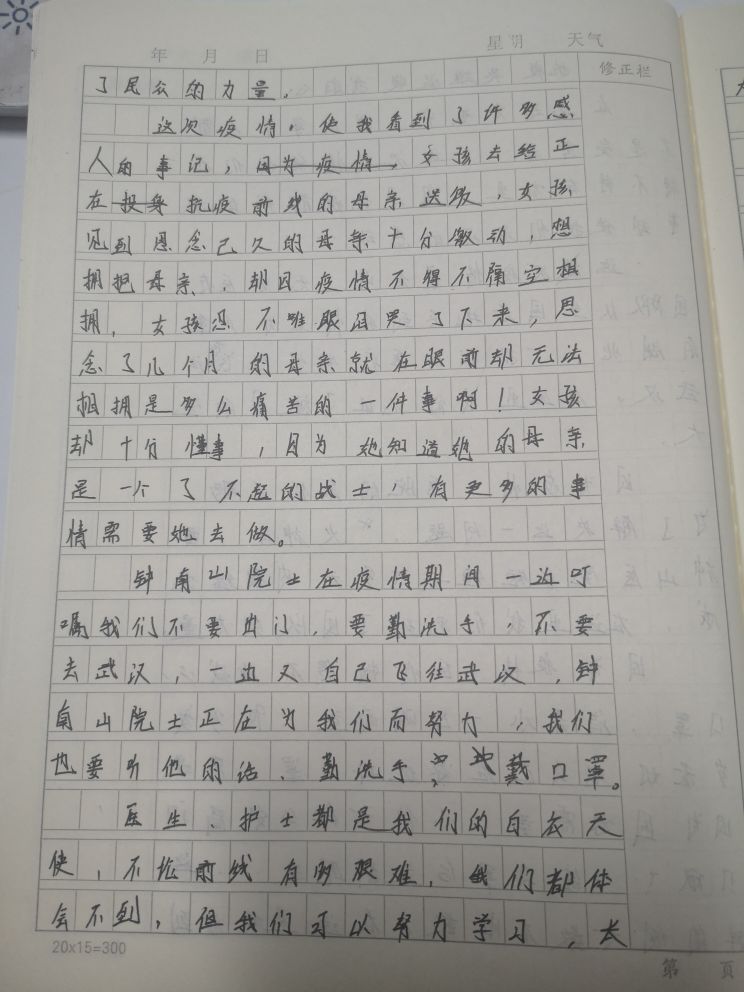 年 月 日 星期 天气
修正栏
了民众的力量。
这次疫情,使我看到了许多感
人的事记,因为疫情,女孩去给正
在投身抗疫前线的母亲送饭,女孩
见到思念已久的母亲十分激动,想
拥抱母亲,却因疫情不得不隔空相
拥,女孩忍不唯眼泪哭了下来,思
念了几个月的母亲就在眼前却无法
相拥是多么痛苦的一件事啊!女孩
却十分懂事,因为她知道她的母亲
是一个了不起的战士,有更多的事
情需要她去做。
钟南山院士在疫情期间一边叮
嘱我们不要出门,要勤洗手,不要
去武汉,一边又自己飞往武汉,钟
南山院士正在为我们而努力,我们
也要听他的话、勤洗手,戴口罩。
医生、护士都是我们的白衣天
使,不论前线有多艰难,我们都体
会不到,但我们可以努力学习,长
20×15=300
第 页